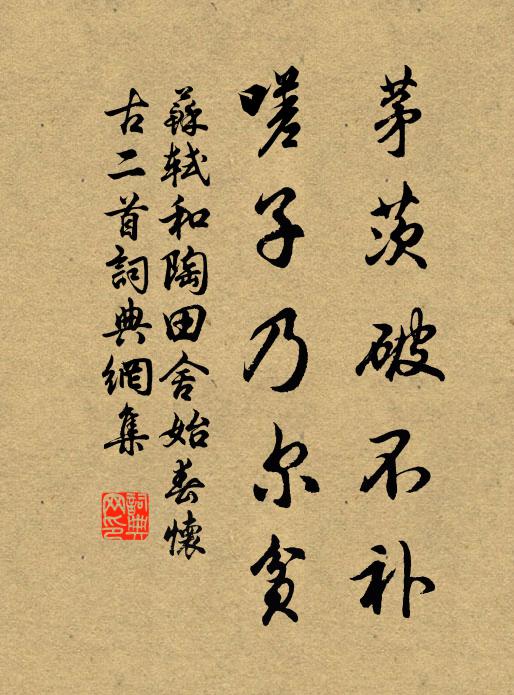 茅茨破不补
嗟子乃尔贫
蘇軾和陶田舍始春懷
古二首詞典網集
詞典网印